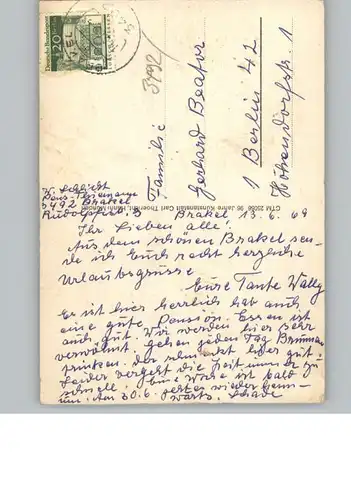 20
3492
Familie
Gerhard Beator
1 Berlin 42
Höhendorfstr. 1
CTM 25058 95 Jahre Kunstanstalt Carl Thoericht, Hann.-Münden
W. Schlicht
Pens.
3492 Brakel
Brakel 13. 6. 69
Ihr Lieben alle!
Aus dem schönen Brakel sen-
de ich Euch recht herzliche
Urlaubsgrüsse
Eure Tante Wally
Es ist hier herrlich hab auch
eine gute Pension. Essen ist
auch gut. Wir werden hier sehr
verwöhnt gehen jeden Tag Brunnen
trinken. der schmeckt hier gut.
Leider vergeht die Zeit immer zu
schnell. Eine Woche ist bald
um. Am 30.6. geht es wieder heim-
wärts. Schade